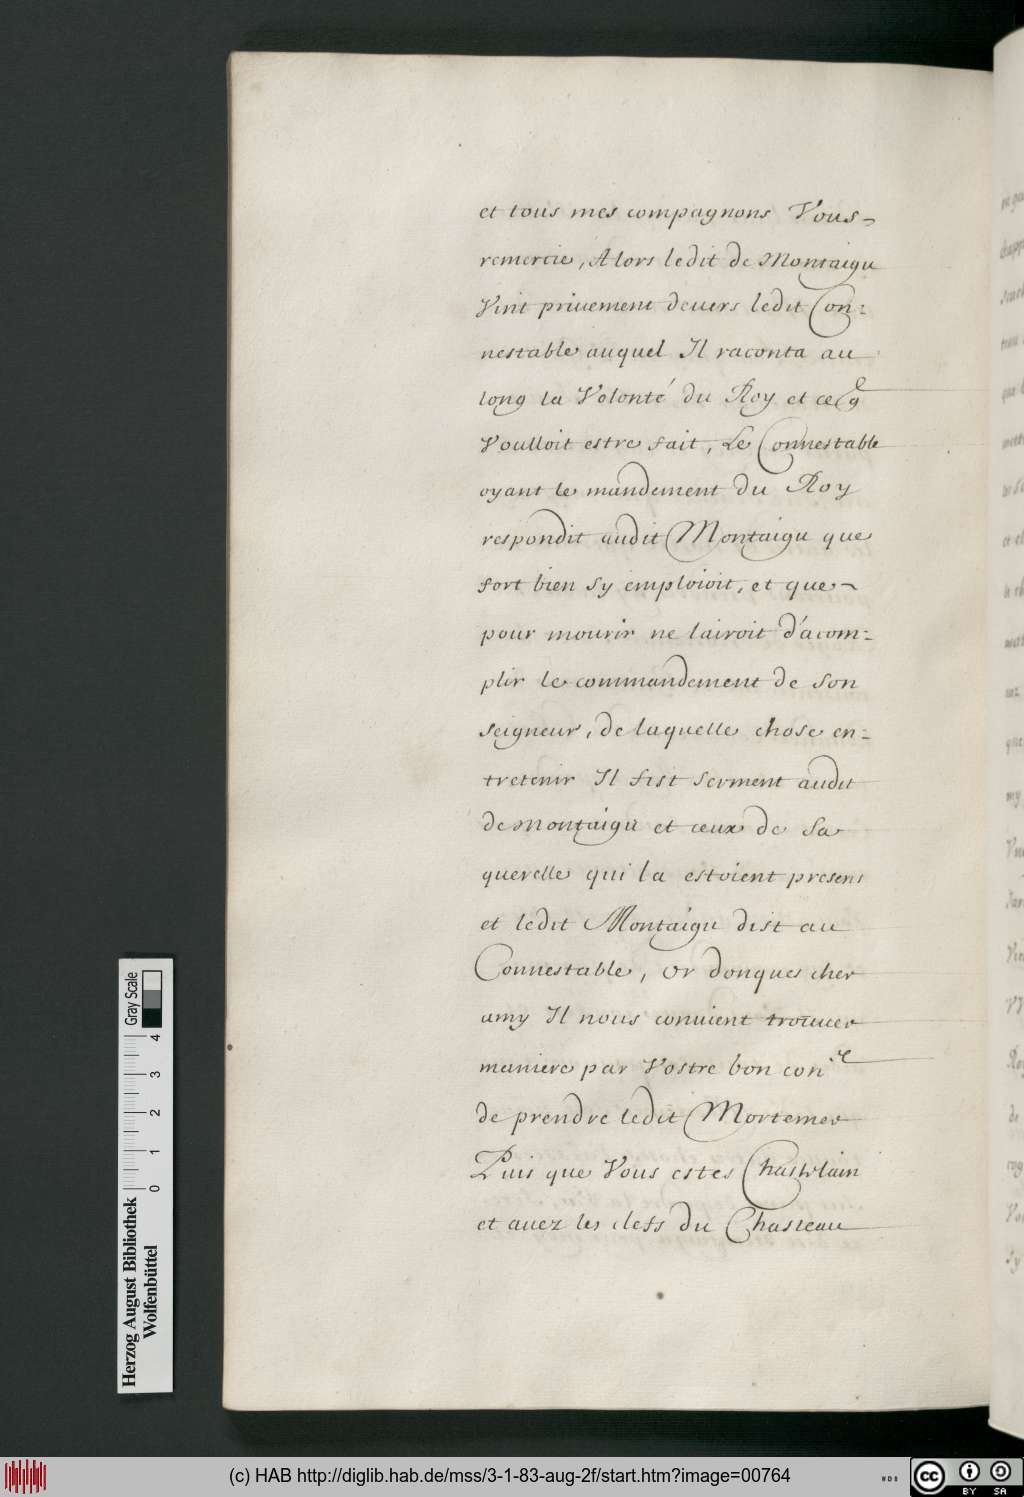 et tous mes compagnons Vous¬
remercie, Alors ledit de Montaigu
Vint priuement deuers ledit Con=
nestable auquel Il raconta au
long la Volonté du Roy et ce q̃
Voulloit estre fait, Le Connestable
oyant le mandement du Roy
respondit audit Montaigu que
fort bien sy emploioit, et que¬
pour mourir ne lairoit d'acom=
plir le commandement de son
seigneur, de laquelle chose en=
tretenir Il fist serment audit
de Montaigu et ceux de sa
querelle qui la estoient presens
et ledit Montaigu dist au
Connestable, Or donques cher
amy Il nous conuient trouuer
maniere par Vostre bon con.el
de prendre ledit Mortemer
Puis que Vous estes Chastelain
et auez les clefs du Chasteau
Herzog August Bibliothek
Wolfenbüttel
0 1 2 3 4
Gray Scale
(c) HAB http://diglib.hab.de/mss/3-1-83-aug-2f/start.htm?image=00764
WDB
cc BY SA